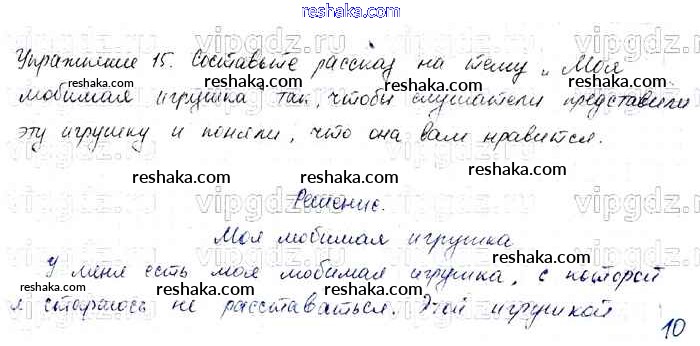 reshaka.com
Упражнение 15. Составьте рассказ на тему „Моя
reshaka.com reshaka.com reshaka.com
любимая игрушка" так, чтобы слушатели представили
эту игрушку и поняли, что она вам нравится.
reshaka.com reshaka.com reshaka.com
Решение.
vipgdz.ru vipgdz.ru
Моя любимая игрушка
reshaka.com reshaka.com reshaka.com
У меня есть моя любимая игрушка, с которой
я стараюсь не расставаться. Этой игрушкой
reshaka.com reshaka.com
10